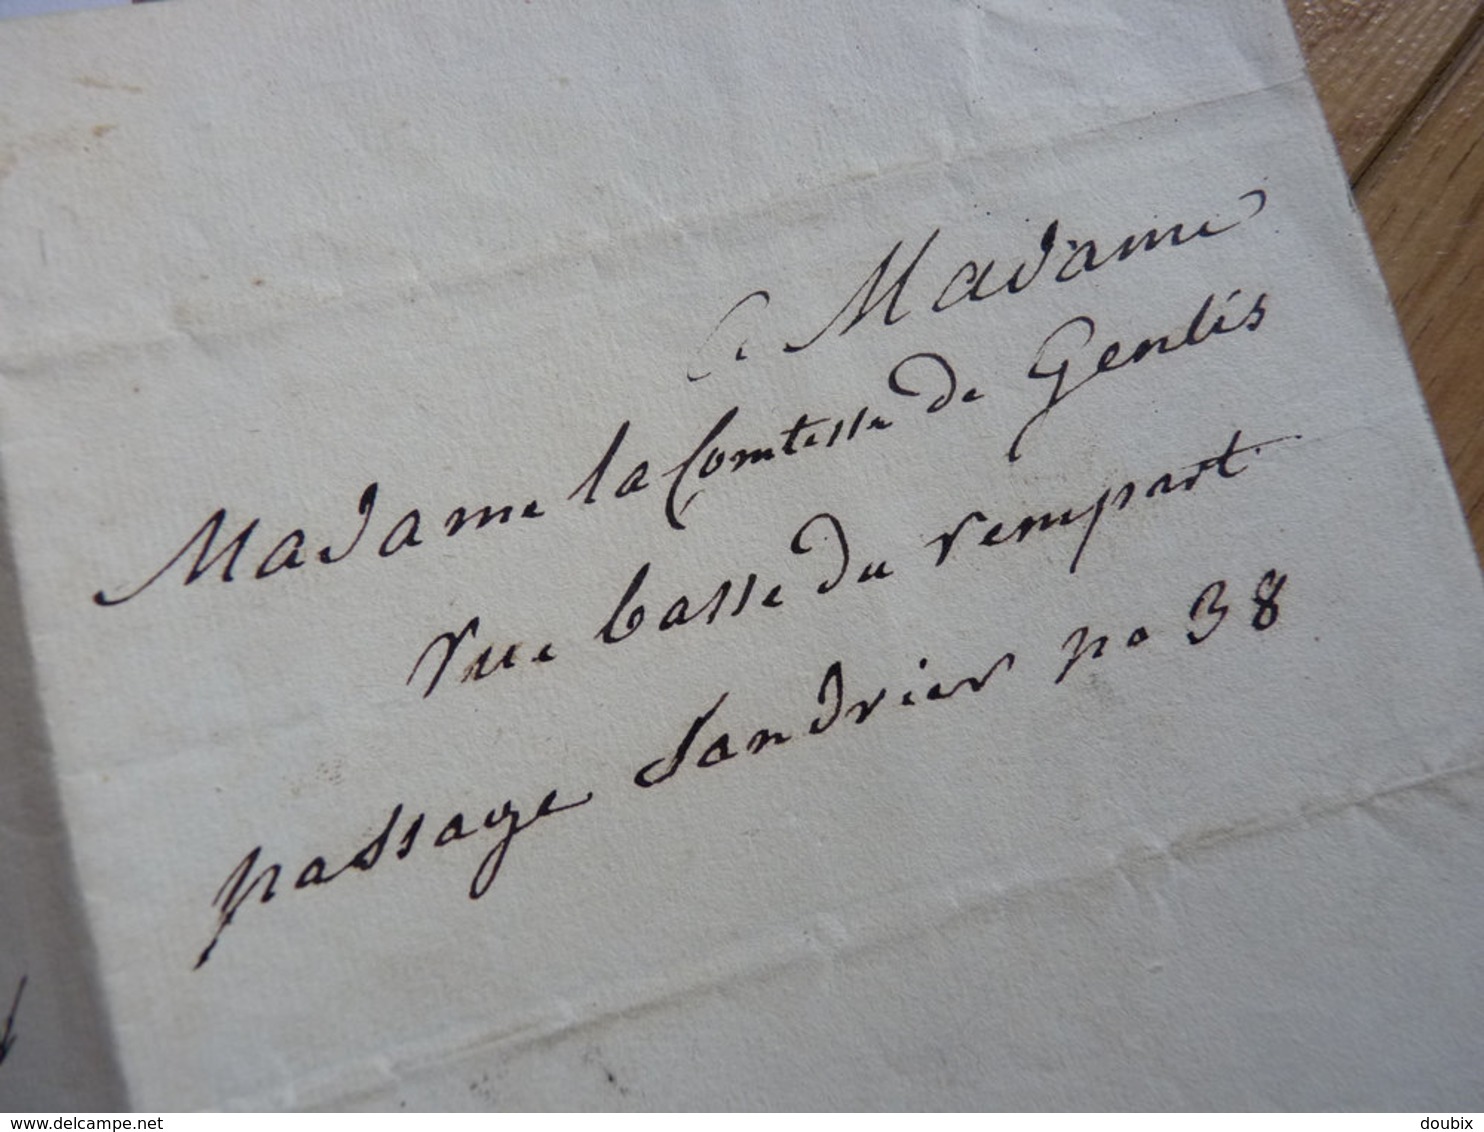 a Madame
Madame la Comtesse de Genlis
rue basse du rempart
passage Sandrier no 38
www.delcampe.net
doubix